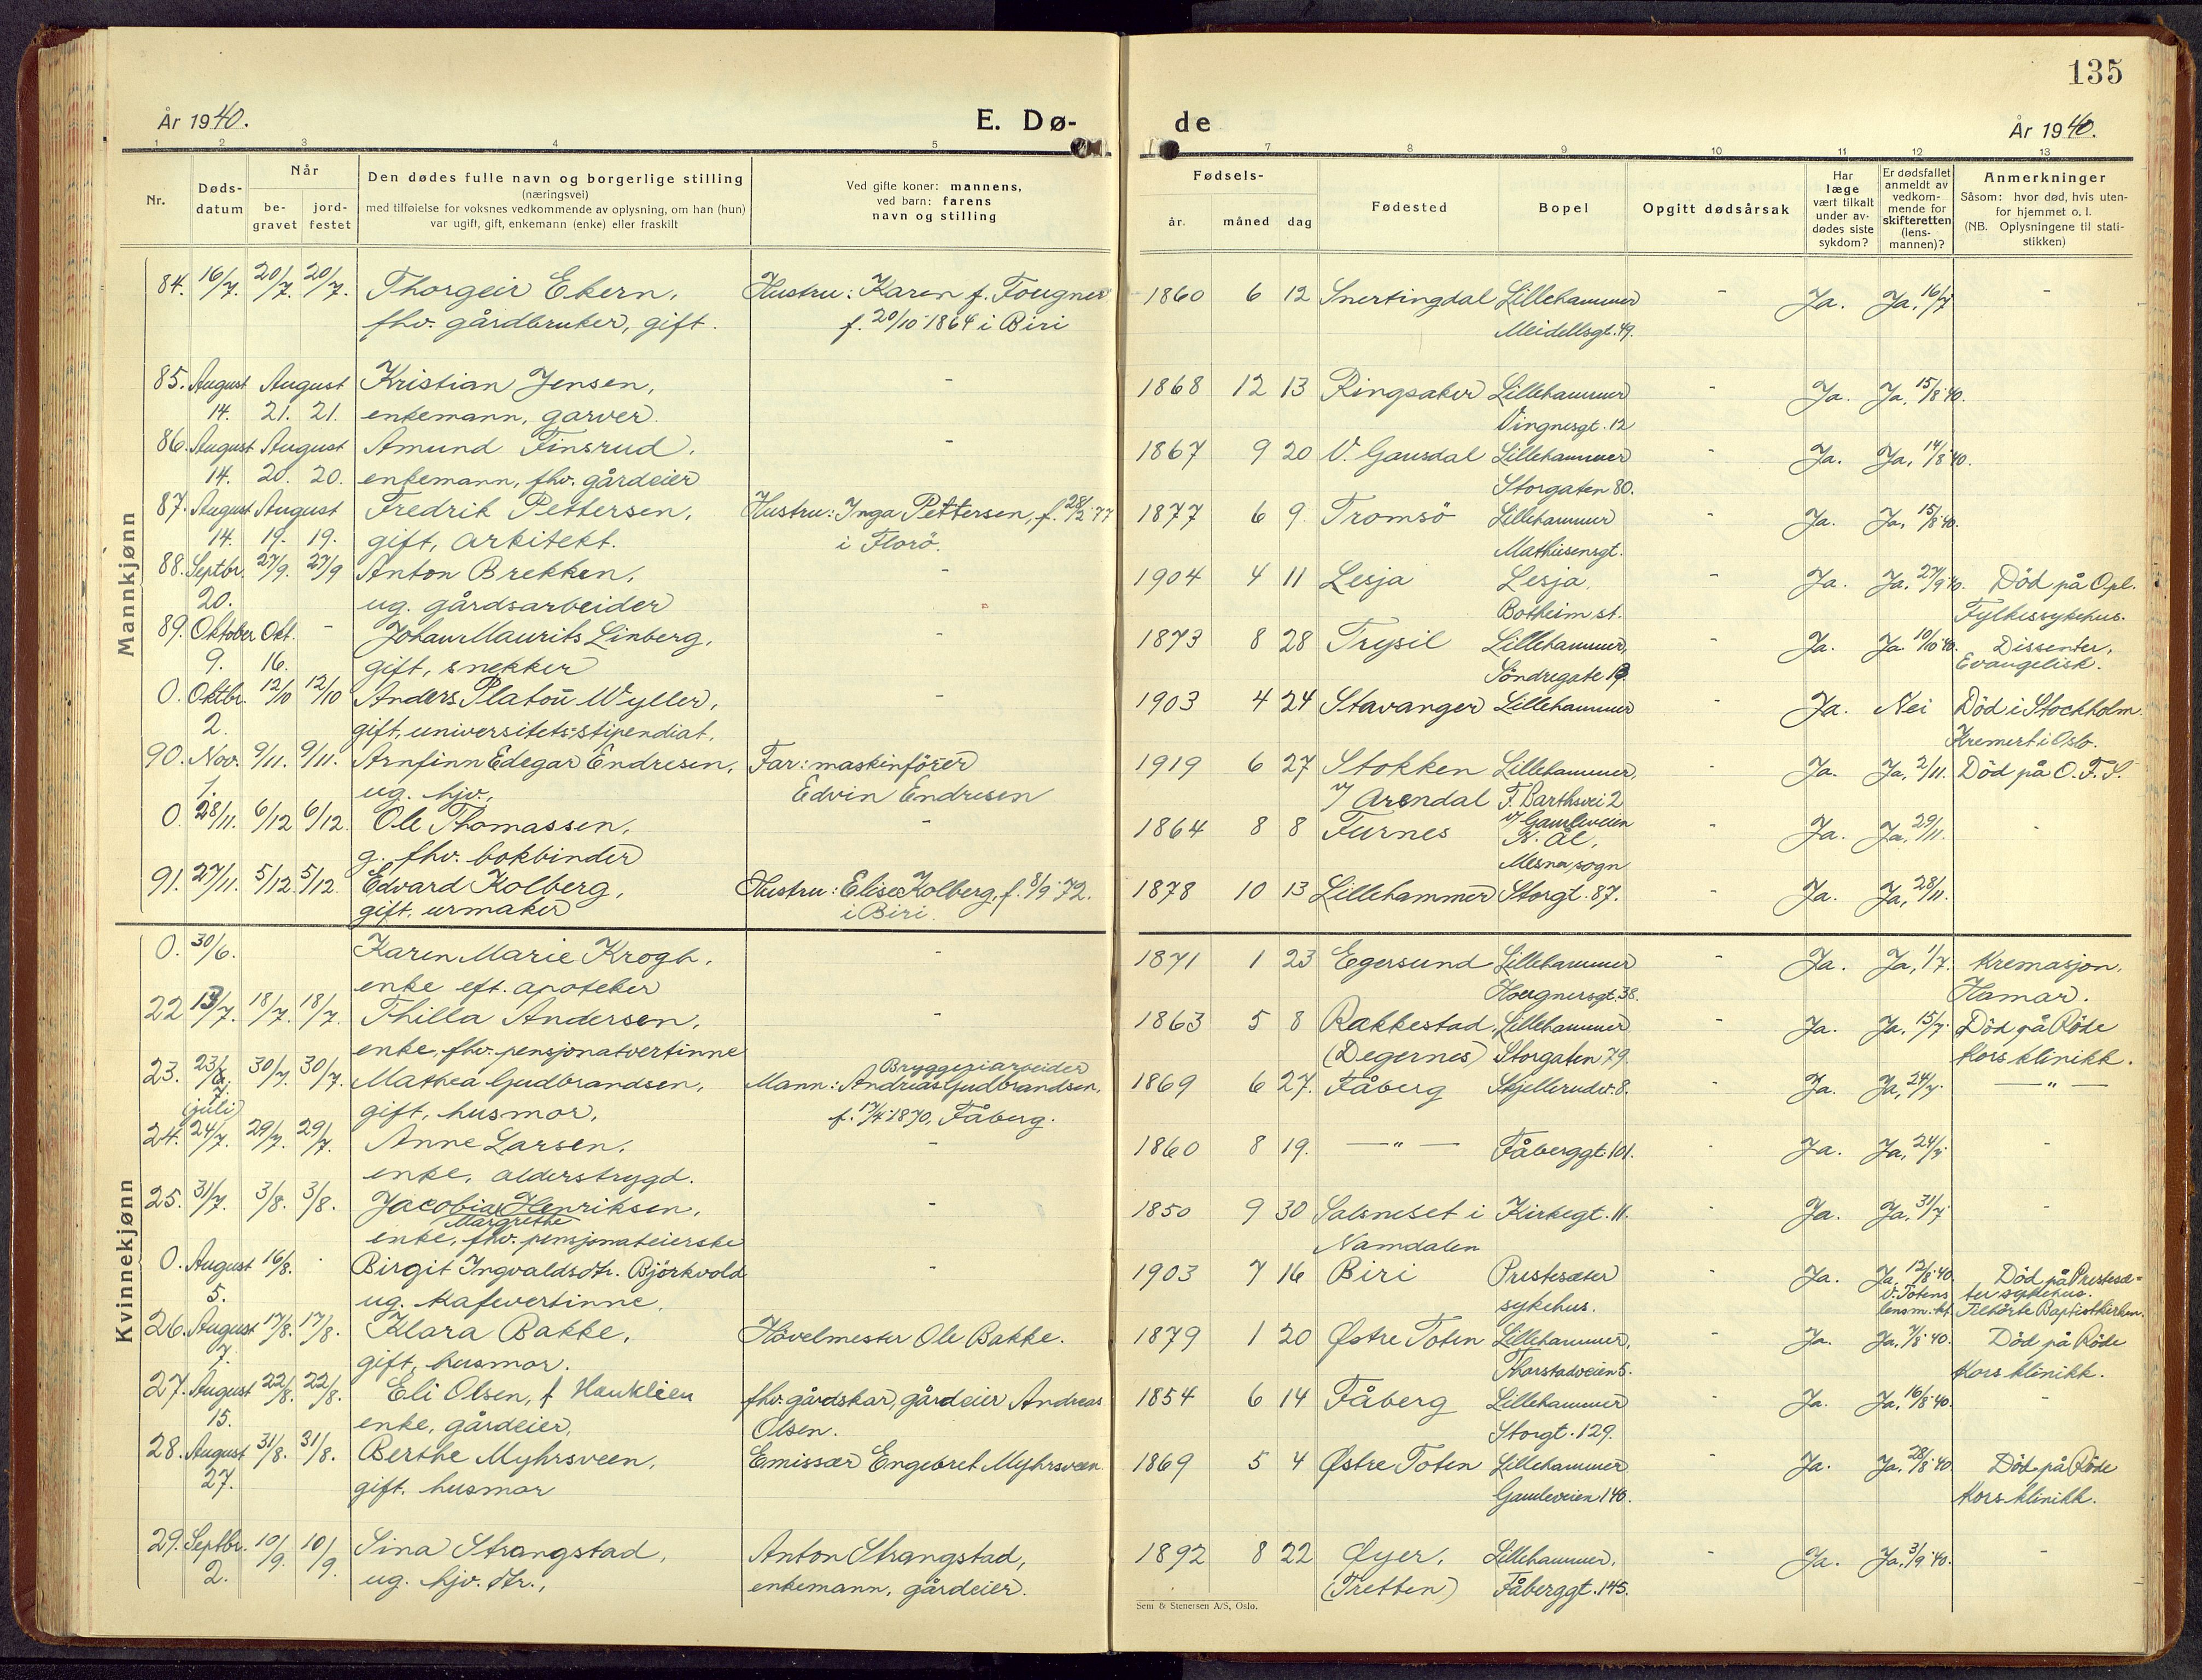 135
År 1940.
E. Dø-
de
År 1940.
1 2 3 4 5
7 8 9 10 11 12 13
Nr.
Døds-
datum
Når
be-
gravet
jord-
festet
Den dødes fulle navn og borgerlige stilling
(næringsvei)
med tilføielse for voksnes vedkommende av oplysning, om han (hun)
var ugift, gift, enkemann (enke) eller fraskilt
Ved gifte koner: mannens,
ved barn: farens
navn og stilling
Fødsels-
år. måned dag
Fødested
Bopel
Opgitt dødsårsak
Har
læge
vært tilkalt
under av-
dødes siste
sykdom?
Er dødsfallet
anmeldt av
vedkom-
mende for
skifteretten
(lens-
mannen)?
Anmerkninger
Såsom: hvor død, hvis uten-
for hjemmet o. l.
(NB. Oplysningene til stati-
stikken)
Mannkjønn
84. 16/7. 20/7. 20/7. Thorgeir Ekern, Hustru: Karen f. Fougner 1860 6 12 Snertingdal Lillehammer - Ja. Ja, 16/7 -
fhv. gårdbruker, gift. f. 20/10 1864 i Biri Meidellsgt. 49.
85. August August Kristian Jensen, - 1868 12 13 Ringsaker Lillehammer - Ja. Ja, 15/8 40.
14. 21. 21. enkemann, garver. Vingnesgt. 12
86. August August Amund Finsrud, - 1867 9 20 V. Gausdal Lillehammer - Ja. Ja, 14/8 40.
14. 20. 20. enkemann, fhv. gårdeier Storgaten 80.
87. August August Fredrik Pettersen, Hustru: Inga Pettersen, f. 28/2 77 1877 6 9. Tromsö Lillehammer - Ja. Ja, 15/8 40.
14. 19. 19. gift, arkitekt. i Florö. Mathiesensgt.
88. Septbr. 27/9. 27/9 Anton Brekken, - 1904 4 11 Lesja Lesja, - Ja. Ja, 27/9 40. Död på Opl.
20. ug. gårdsarbeider Botheim st. Fylkessykehus.
89. Oktober Okt. - Johan Maurits Linberg, - 1873 8 28 Trysil Lillehammer, - Ja. Ja. 10/10 40. Dissenter,
9. 16. gift, snekker Söndregate 19. Evangelisk.
0. Oktbr. 12/10 12/10 Anders Platou Wyller, - 1903 4 24 Stavanger Lillehammer - Ja. Nei Död i Stockholm
2. gift, universitets-stipendiat. Kremert i Oslo.
90. Nov. 9/11. 9/11. Arnfinn Edegar Endresen, Far: maskinförer 1919 6 27 Stokken Lillehammer, - Ja. Ja, 2/11. Död på O. F. S.
1. ug. hjv., Edvin Endresen v/ Arendal F. Barthsvei 2
0. 28/11. 6/12 6/12. Ole Thomassen, - 1864 8 8 Furnes v/ Gamleveien - Ja. Ja, 29/11. -
g. fhv. bokbinder N. Ål,
Mesna sogn
91. 27/11. 5/12. 5/12. Edvard Kolberg, Hustru: Elise Kolberg, f. 8/9 72. 1878 10 13 Lillehammer Storgt. 87. - Ja. Ja, 28/11.
gift, urmaker i Biri.
Kvinnekjønn
0. 30/6. Karen Marie Krogh, - 1871 1 23 Egersund Lillehammer - Ja. Ja, 1/7. Kremasjon,
enke eft. apoteker 38. Hamar.
22 13/7. 18/7. 18/7. Thilla Andersen, - 1863 5 8 Rakkestad Lillehammer - Ja. Ja, 15/7. Död på Röde
enke, fhv. pensjonatvertinne (Degernes) Storgaten 79. Kors klinikk.
23. 23/7. 30/7. 30/7. Mathea Gudbrandsen, Bryggeriarbeider
(juli) Mann: Andreas Gudbrandsen, 1869 6 27. Fåberg Skjellerudv. 8. Ja. Ja, 24/7. — " —
gift, husmor, f. 17/4 1870, Fåberg.
24. 24/7. 29/7. 29/7. Anne Larsen, - 1860 8 19. — " — Fåberggt. 101. - Ja. Ja, 24/7 -
enke, alderstrygd.
25. 31/7. 3/8. 3/8. Jacobia Henriksen, - 1850 9 30 Salsneset i Kirkegt. 11. - Ja. Ja, 31/7 -
Margrethe
enke, fhv. pensjonateierske Namdalen
0. August 16/8. - Birgit Ingvaldsdtr. Björkvold - 1903 7 16 Biri Prestesæter Ja. Ja, 12/8 40 Död på Prestesæ-
5. ug. kafevertinne, sykehus. V. Totens lensm. kt. ter sykehus. Tilhörte Baptistkirken.
26. August 17/8. 17/8. Klara Bakke, Hövelmester Ole Bakke. 1879 1 20 Østre Toten Lillehammer, - Ja. Ja. 7/8 40. Död på Röde
7. gift, husmor. Thorstadveien 5. Kors klinikk.
27. August 22/8. 22/8. Eli Olsen, f Hauklien fhv. gårdskar, gårdeier Andreas 1854 6 14 Fåberg Lillehammer - Ja. Ja, 16/8 40. -
15. enke, gårdeier, Olsen. Storgt. 129.
28. August 31/8. 31/8. Berthe Myhrsveen, Emissær Engebret Myhrsveen 1869 5 4 Østre Toten Lillehammer - Ja. Ja, 28/8 40 Död på Röde
27. gift. husmor Gamleveien 140. Kors klinikk.
29. Septbr. 10/9. 10/9. Sina Strangstad, Anton Strangstad, 1892 8 22 Øyer, Lillehammer, - Ja. Ja, 3/9 40. -
2. ug. hjv. dtr., enkemann, gårdeier. (Tretten) Fåberggt. 145.
Sem & Stenersen A/S, Oslo.